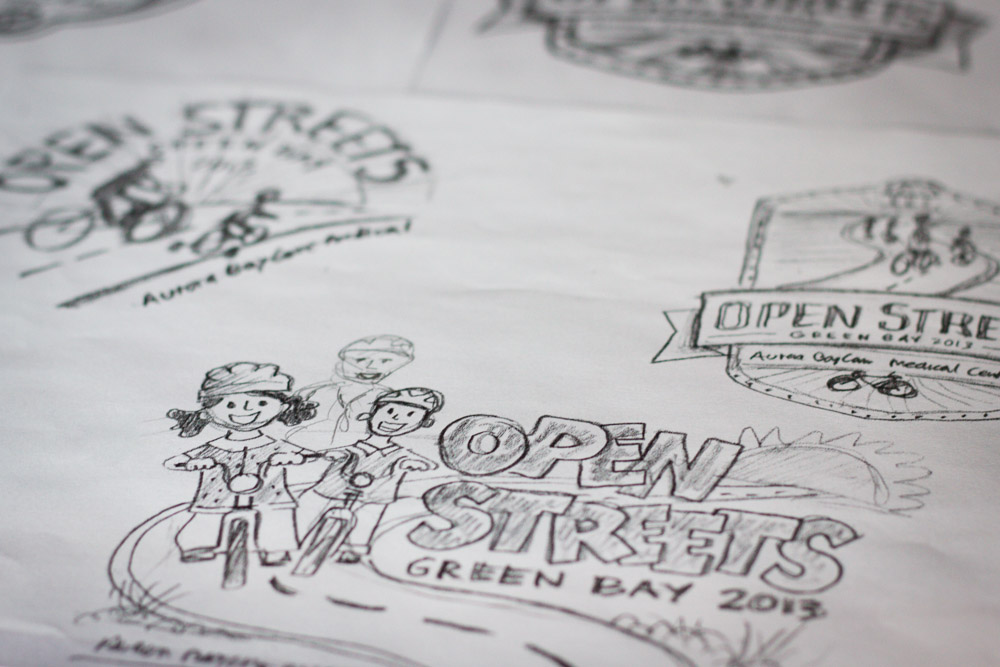 STREETS
OPEN STREETS
Aurora BayCare Medical
OPEN STRE
GREEN BAY 2013
Aurora BayCare Medical Cent
OPEN
STREETS
GREEN BAY 2013